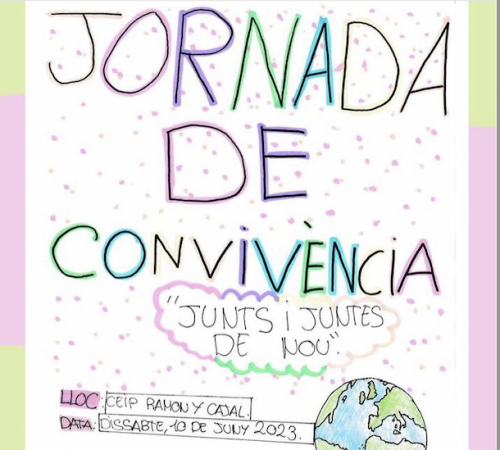 JORNADA
DE
CONVIVÈNCIA
"JUNTS i JUNTES
DE NOU".
LLOC: CEIP RAMON Y CAJAL.
DATA: DISSABTE, 10 DE JUNY 2023.